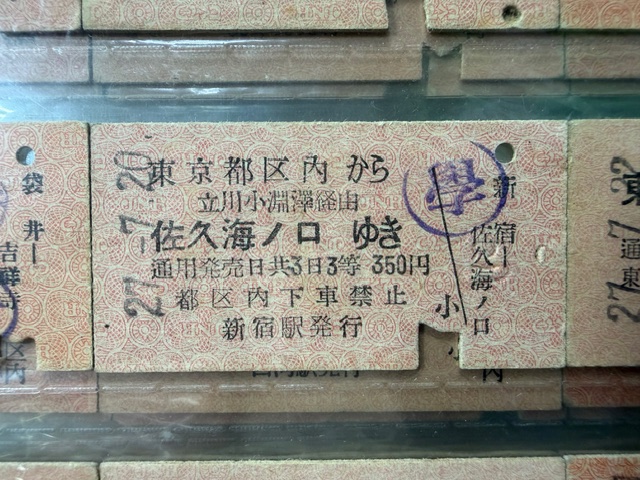 東京都区内から
立川小淵澤経由
佐久海ノ口ゆき
通用発売日共3日3等 350円
都区内下車禁止
新宿駅発行
27-7.20
學
新宿―
佐久海ノ口
小
袋井―
吉祥寺
区内
27-7.22
東
通
東
内